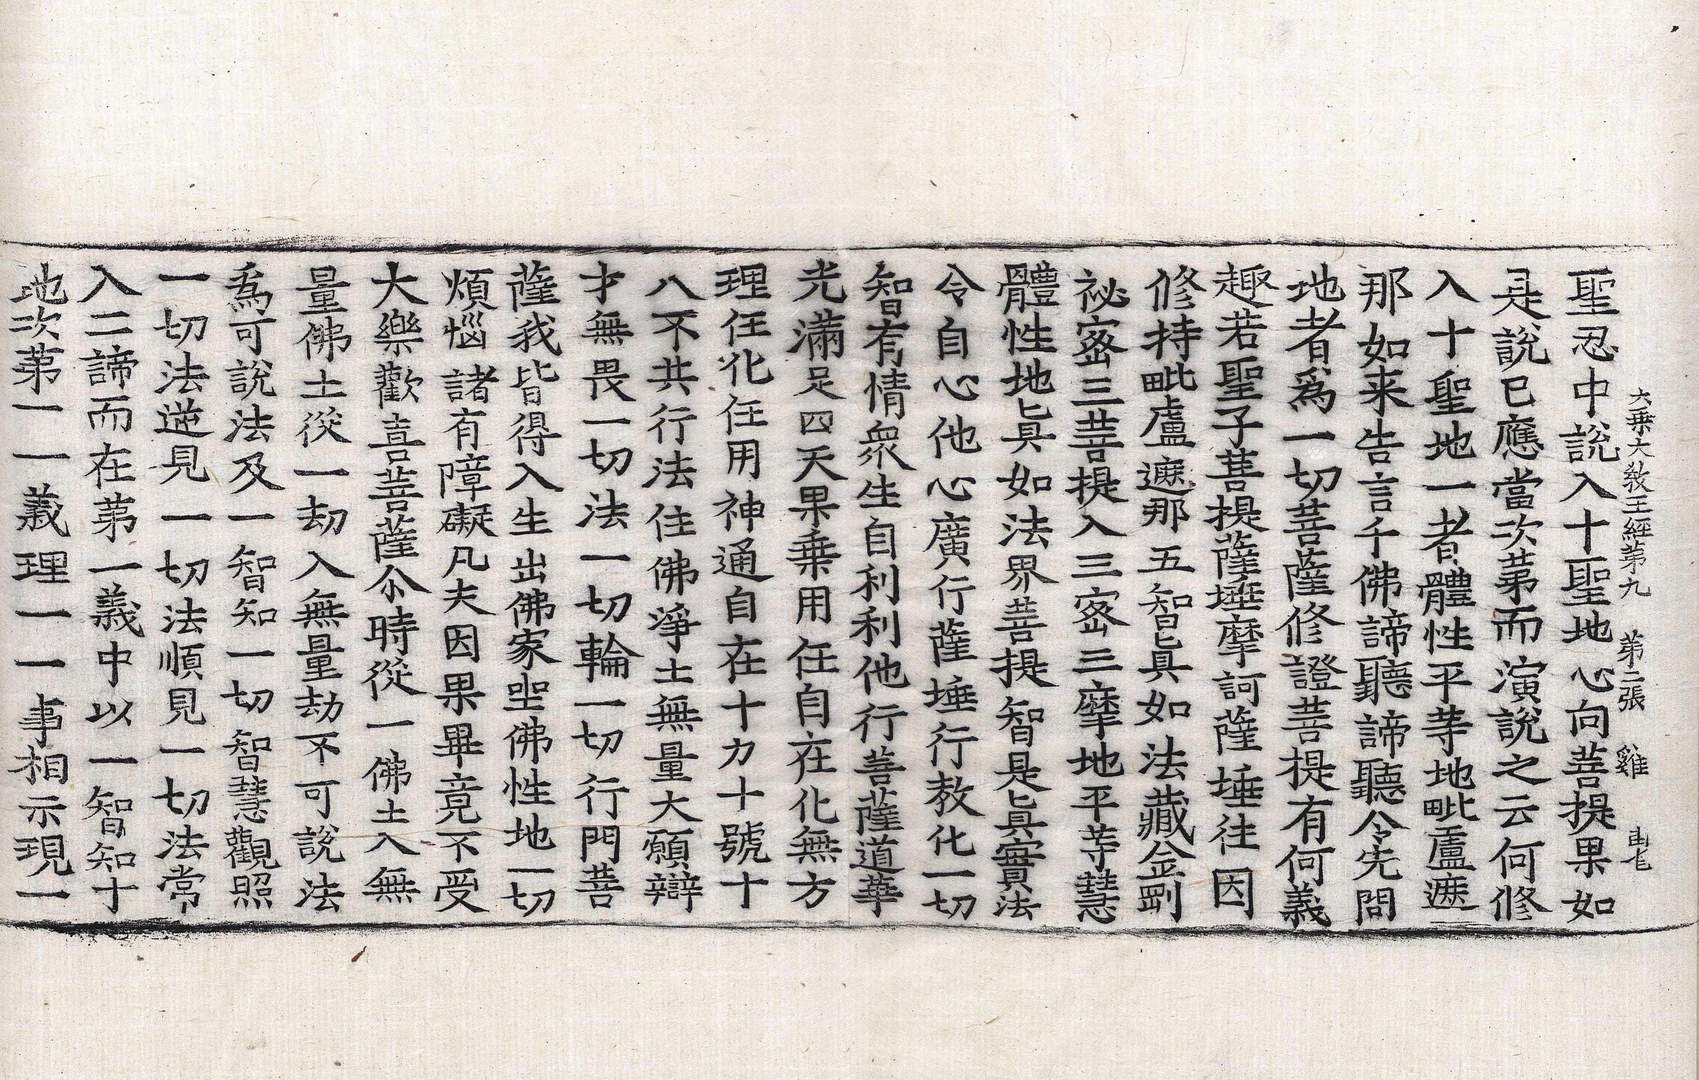 大乗大敎王經第九 第二張 雞
聖忍中說入十聖地心向菩提果如
是說已應當次苐而演說之云何修
入十聖地一者體性平等地毗盧遮
那如来告言千佛諦聽諦聽令先問
地者爲一切菩薩修證菩提有何義
趣若聖子菩提薩埵摩訶薩埵往因
修持毗盧遮那五智眞如法藏金剛
祕密三菩提入三密三摩地平等慧
體性地眞如法界菩提智是眞實法
令自心他心廣行薩埵行教化一切
智有情衆生自利利他行菩薩道華
光滿足四天果乗用任自在化無方
理任化任用神通自在十力十號十
八不共行法住佛淨土無量大願辯
才無畏一切法一切輪一切行門菩
薩我皆得入生出佛家坐佛性地一切
煩惱諸有障礙凡夫因果畢竟不受
大樂歡喜菩薩尒時從一佛土入無
量佛土從一劫入無量劫不可說法
爲可說法及一智知一切智慧觀照
一切法逆見一切法順見一切法常
入二諦而在苐一義中以一智知十
地次苐一一義理一一事相示現一